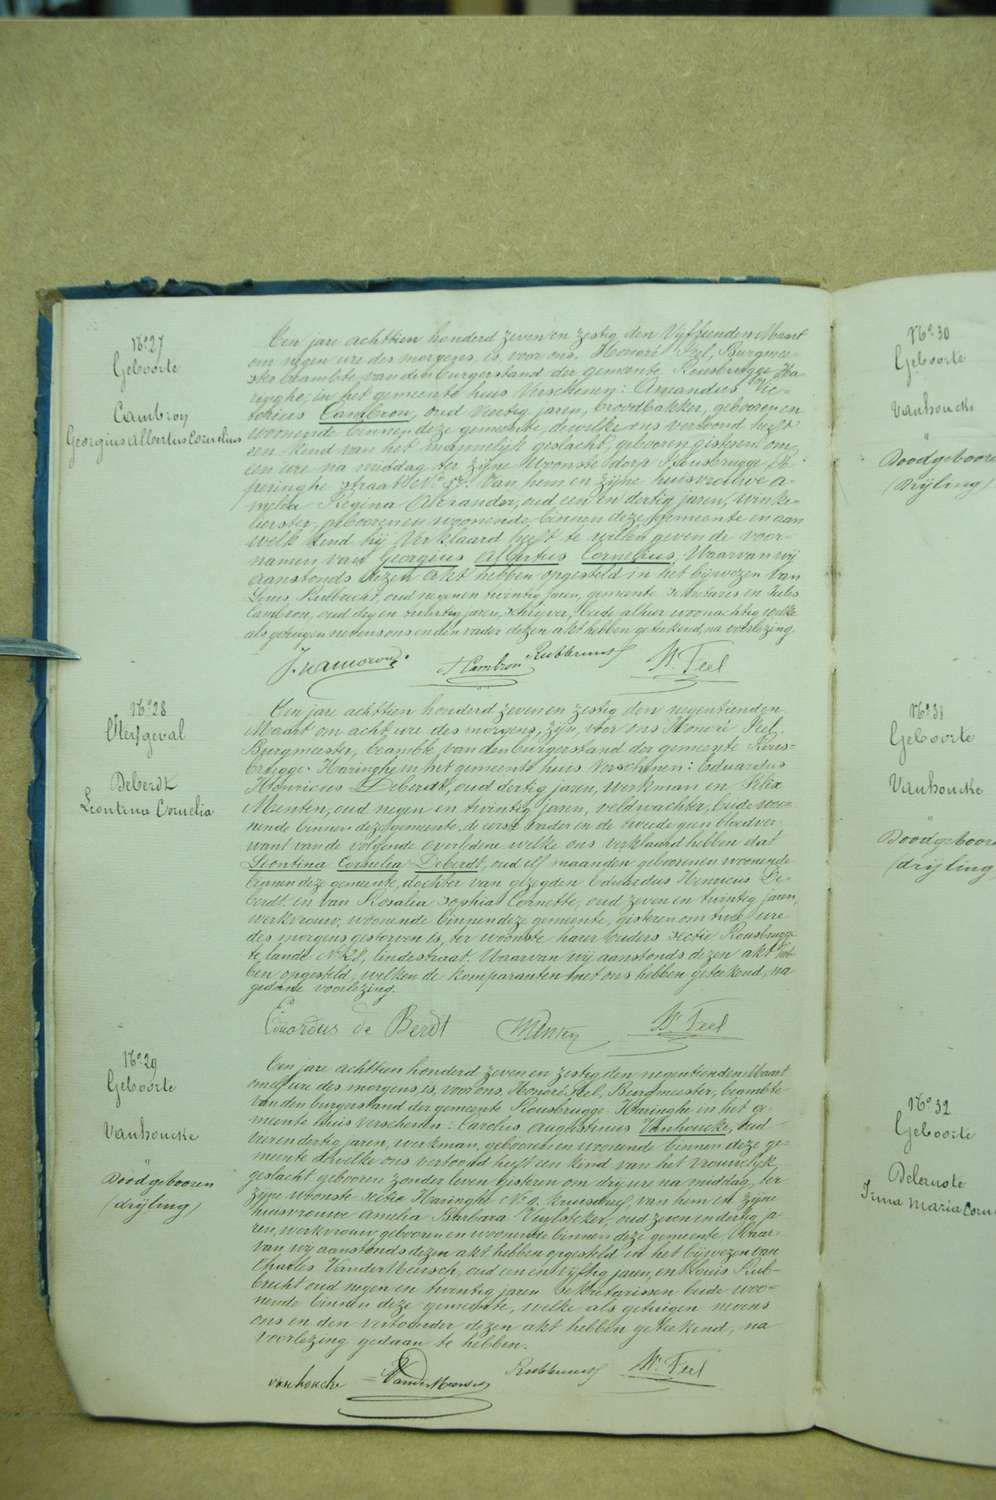 N° 27
Geboorte
Cambron
Georgius Albertus Cornelius
Een jare achttien honderd zeven en zestig den Vyftienden Maart
om negen ure des morgens, is voor ons, Honoré Feel, Burgmee-
ster beambte van den burgerstand der gemeente Rousbrugge-Ha-
ringhe, in het gemeente huis Verschenen: Amandus Vic-
torius Cambron, oud veertig jaren, broodbakker, geboren en
woonende binnen deze gemeente, dewelke ons vertoond heeft
een kind van het mannelyk geslacht, geboren gisteren om
een ure na middag ter zijne woonste dorp Rousbrugge
peringhe straat N° 52. van hem en zijne huisvrouwe a-
melia Regina Alexander, oud een en dertig jaren, winke-
lierster, geboren en woonende binnen deze gemeente en aan
welk kind hij Verklaard heeft te willen geven de voor-
namen van Georgius Albertus Cornelius. Waarvan wij
aanstonds dezen akt hebben opgesteld in het bijwezen van
Louis Rubbrecht, oud negen en twintig jaren, gemeente secretaris en Jules
Cambron, oud dry en twintig jaren, schrijver, beide alhier woonachtig, welke
als getuigen nevens ons en den vader dezen akt hebben geteekend, na voorlezing.
A Cambron Rubbrecht H. Feel
N° 28
Sterfgeval
Deberdt
Leontina Cornelia
Een jare achttien honderd zeven en zestig den negentienden
Maart om acht ure des morgens, zijn, voor ons Honoré Feel,
Burgmeester, beambte van den burgerstand der gemeente Rous-
brugge-Haringhe in het gemeente huis Verschenen: Eduardus
Henricus Deberdt, oud dertig jaren, werkman en Felix
oud negen en twintig jaren, veldwachter, beide woo-
nende binnen deze gemeente, de eerst vader en de tweede geen bloedver-
want van de volgende overledene welke ons verklaard hebben dat
Leontina Cornelia Deberdt, oud elf maanden geboren en woonende
binnen deze gemeente, dochter van gezegden Eduardus Henricus De-
berdt en van Rosalia Sophia Cornette, oud zeven en twintig jaren,
werkvrouw, woonende binnen deze gemeente, gisteren om twee ure
des morgens gestorven is, ter woonste harer ouders sectie Rousbrugge
te lande N° 28, lindestraat. Waarvan wij aanstonds dezen akt heb-
ben opgesteld, welken de komparanten met ons hebben geteekend, na
gedane voorlezing.
Eduardus de Berdt H. Feel
N° 29
Geboorte
Vanhoucke
Doodgebooren
(drijling)
Een jare achttien honderd zeven en zestig den negentienden Maart
om elf ure des morgens is, voor ons, Honoré Feel, Burgmeester, beambte
van den burgerstand der gemeente Rousbrugge-Haringhe in het ge-
meente huis verschenen: Carolus Augustinus Vanhoucke, oud
vier en dertig jaren, werkman, geboren en woonende binnen deze ge-
meente dewelke ons vertoond heeft een kind van het vrouwelijk
geslacht geboren zonder leven gisteren om dry ure na middag, ter
zijne woonste sectie Haringhe N° 9. van hem en zijne
huisvrouwe Amelia Barbara Vuylsteker, oud zeven en dertig ja-
ren, werkvrouw, geboren en woonende binnen deze gemeente. Waar-
van wij aanstonds dezen akt hebben opgesteld in het bijwezen van
Charles VanderMeersch, oud een en vijftig jaren, en Louis Rub-
brecht oud negen en twintig jaren sekretarissen beide woo-
nende binnen deze gemeente, welke als getuigen nevens
ons en den vertooner dezen akt hebben geteekend, na
voorlezing gedaan te hebben.
vanhoucke VanderMeersch Rubbrecht H. Feel
N° 30
Geboorte
Vanhoucke
Doodgebooren
(Drijling)
N° 31
Geboorte
Vanhoucke
Doodgeboore
(drijling)
N° 32
Geboorte
Irma Maria Corn